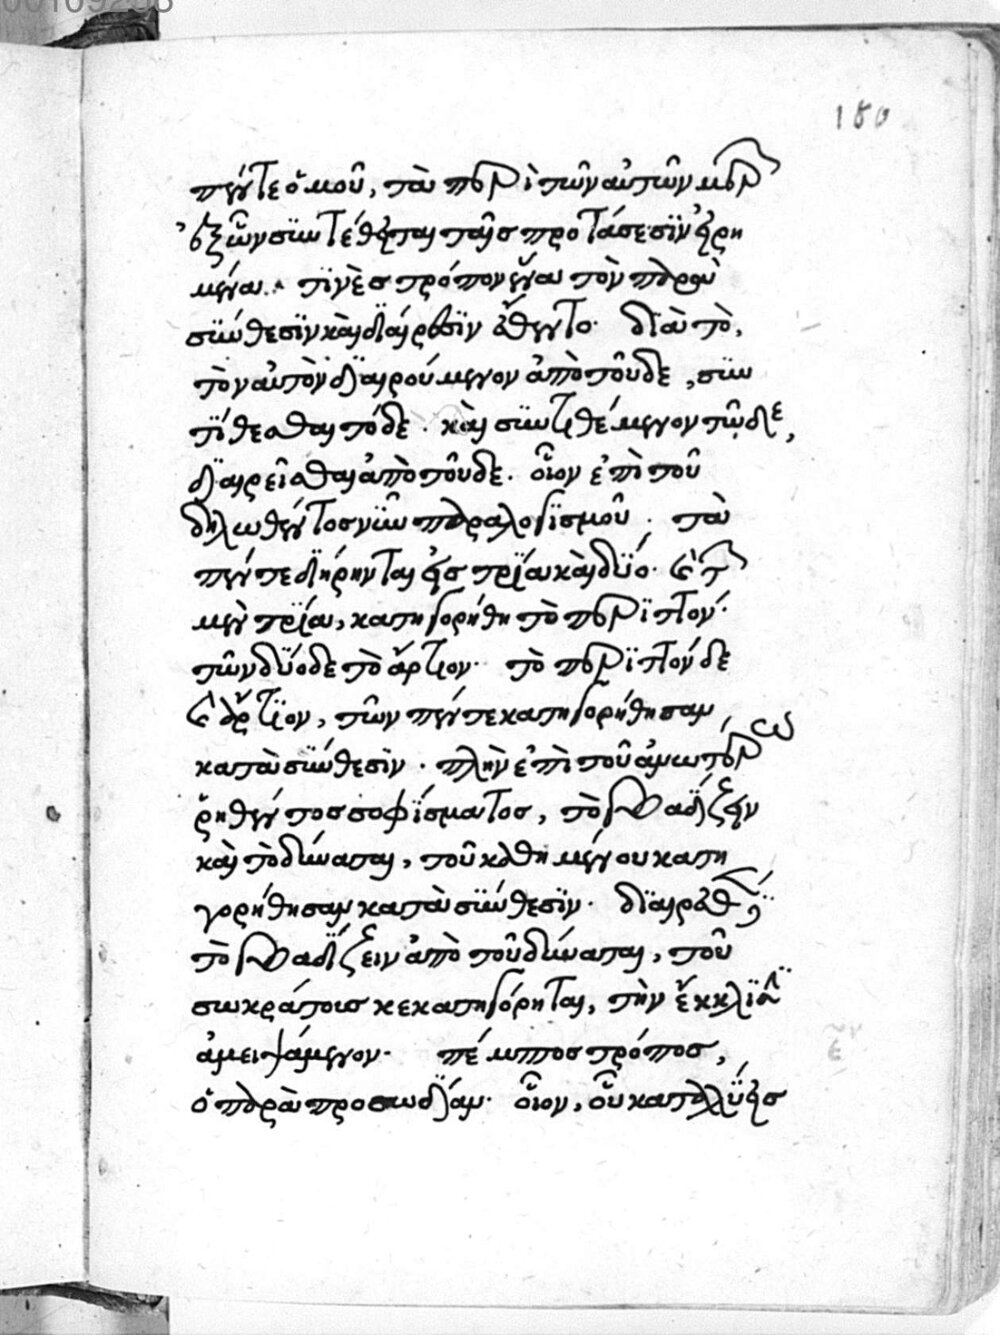 180
πέντε ὁμοῦ, τὰ περὶ τῶν αὐτῶν μερ
ἐξ ὧν συντέθειται ταῖς προτάσεσιν εἰρη
μένα. τινὲς τρόπον ἕνα τὸν παρὰ
σύνθεσιν καὶ διαίρεσιν ἔθεντο. διὰ τὸ,
τὸν αὐτὸν διαιρούμενον ἀπὸ τοῦδε, συν
τίθεσθαι τόδε. καὶ συντιθέμενον τῶδε,
διαιρεῖσθαι ἀπὸ τοῦδε. οἷον ἐπὶ τοῦ
δηλωθέντος νῦν παραλογισμοῦ. τὰ
πέντε διήρηνται εἰς τρία καὶ δύο. καὶ τ
μὲν τρία, κατηγορήθη τὸ περιττόν.
τῶν δύο δε τὸ ἄρτιον. τὸ περιττόν δε
καὶ ἄρτιον, τῶν πέντε κατηγορήθησαν
κατὰ σύνθεσιν. πλὴν ἐπὶ τοῦ ἀνωτέρω
ῥηθέντος σοφίσματος, τὸ βαδίζειν
καὶ τὸ δύναται, τοῦ καθημένου κατη
γορήθησαν κατὰ σύνθεσιν. διαιρεθὲν
τὸ βαδίζειν ἀπὸ τοῦ δύναται, τοῦ
σωκράτους κεκατηγόρηται, τὴν ἔκκλισιν
ἀμειψάμενον. πέμπτος τρόπος,
ὁ παρὰ προσωδίαν. οἷον, οὗ καταλύεις